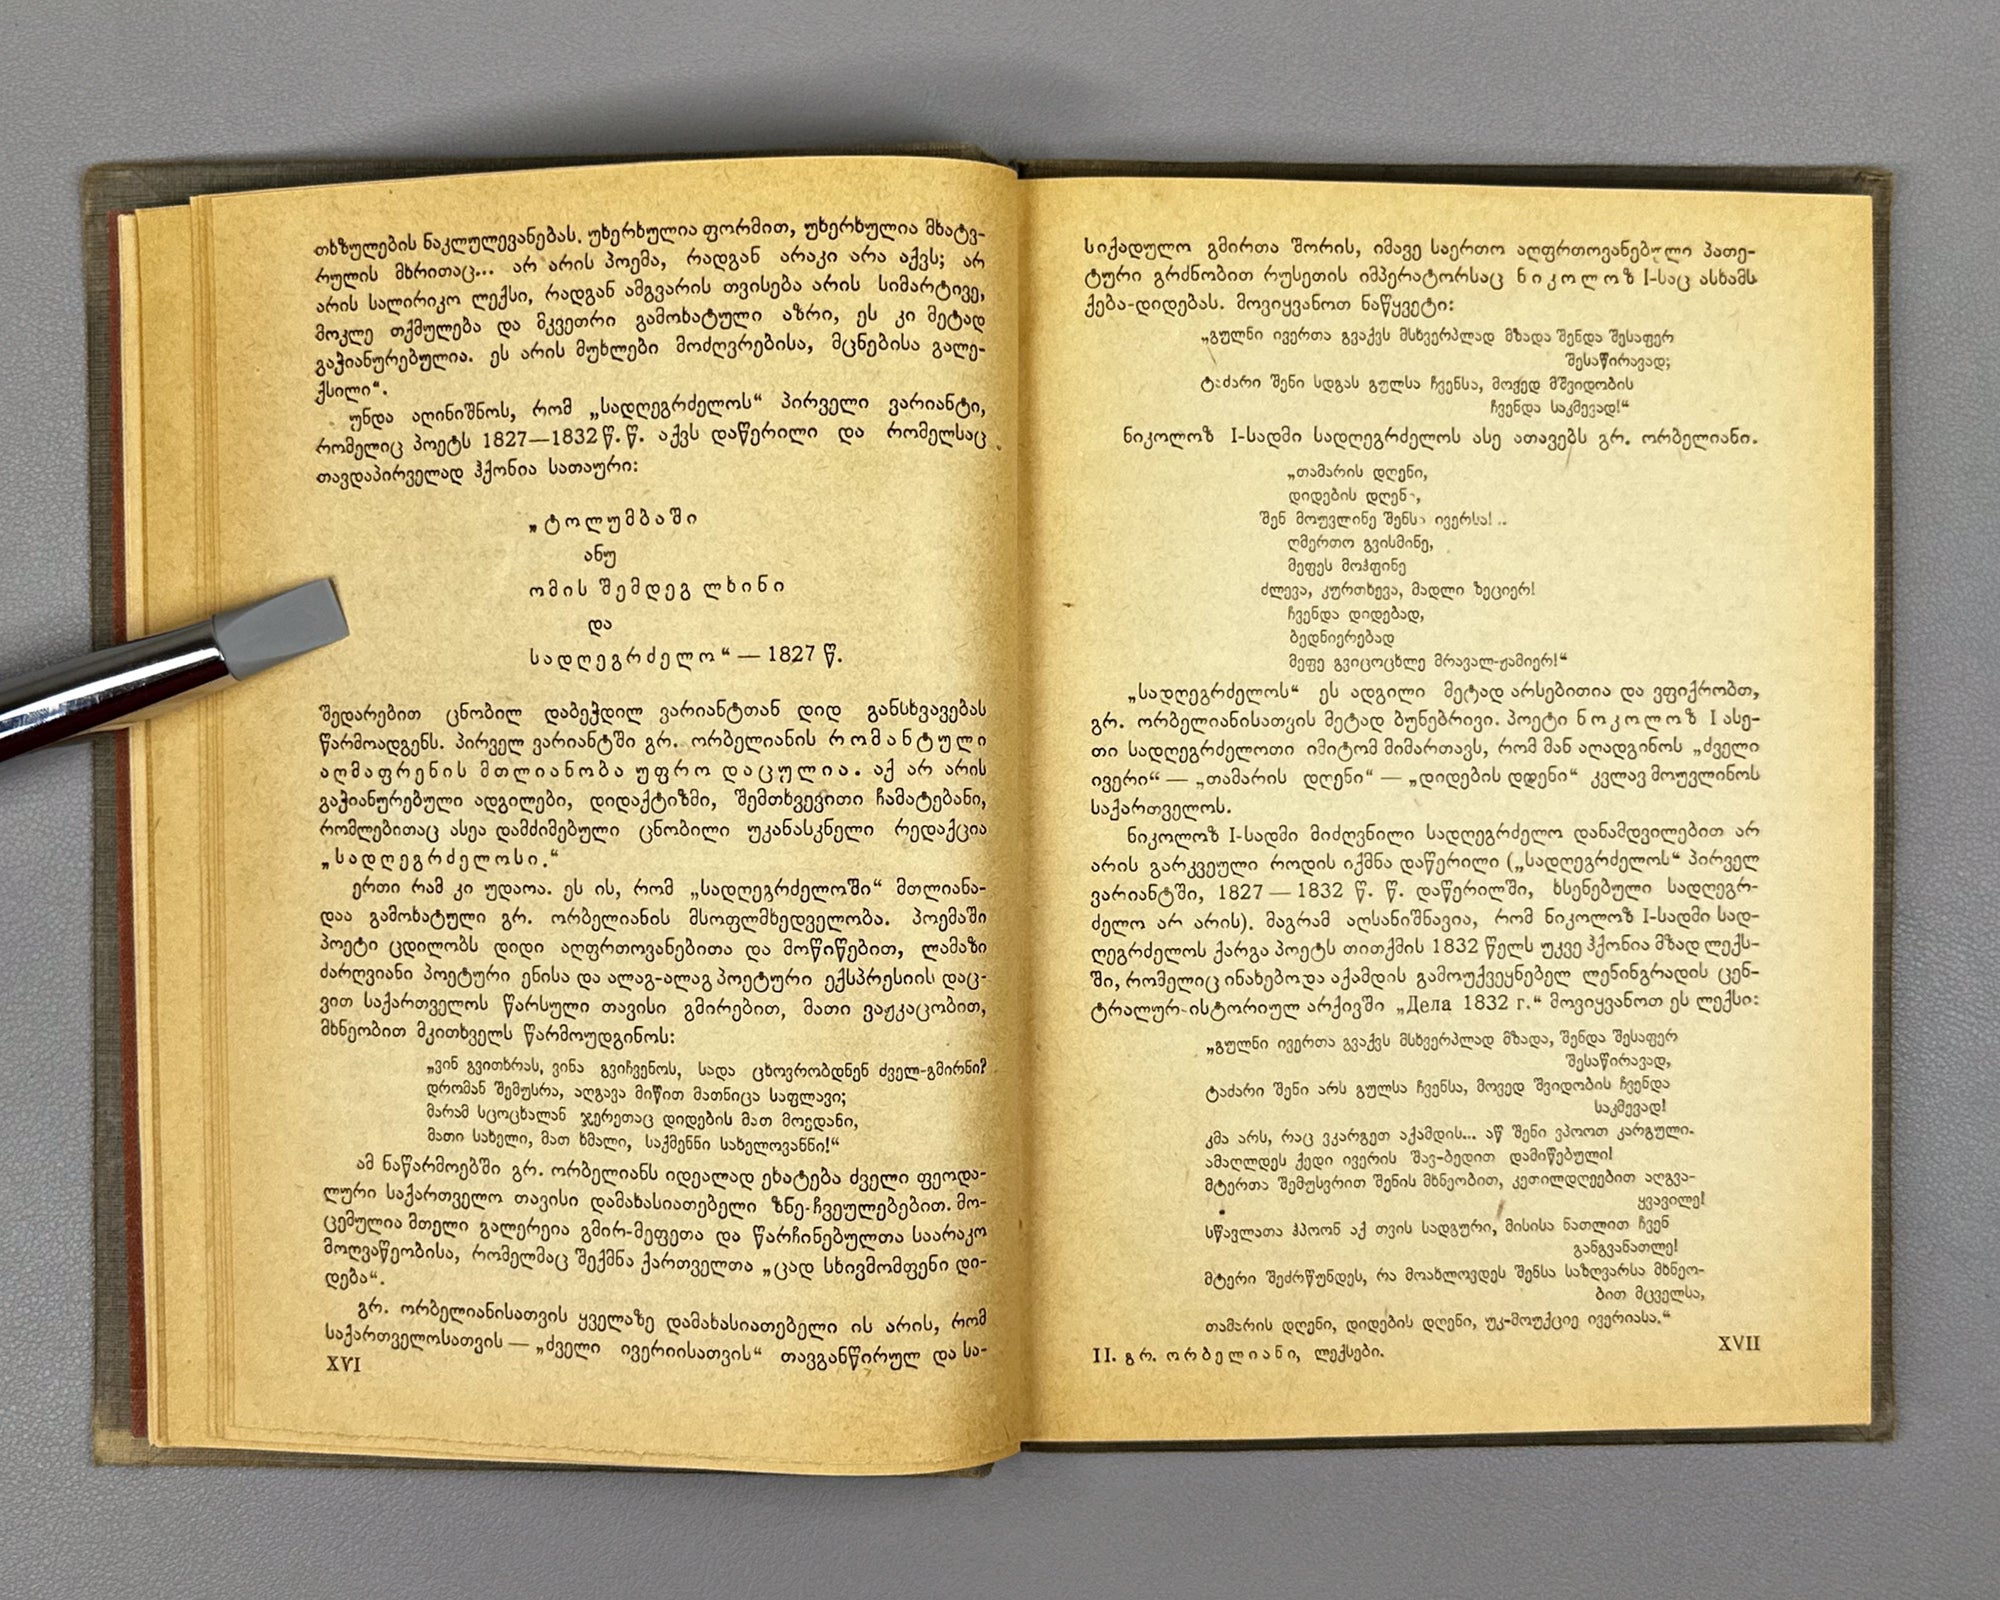 თხზულების ნაკლულევანებას. უხერხულია ფორმით, უხერხულია მხატვ-
რულის მხრითაც... არ არის პოემა, რადგან არაკი არა აქვს; არ
არის სალირიკო ლექსი, რადგან ამგვარის თვისება არის სიმარტივე,
მოკლე თქმულება და მკვეთრი გამოხატული აზრი, ეს კი მეტად
გაჭიანურებულია. ეს არის მუხლები მოძღვრებისა, მცნებისა გალე-
ქსილი“.
უნდა აღინიშნოს, რომ „სადღეგრძელოს“ პირველი ვარიანტი,
რომელიც პოეტს 1827—1832 წ. წ. აქვს დაწერილი და რომელსაც
თავდაპირველად ჰქონია სათაური:
„ტოლუმბაში
ანუ
ომის შემდეგ ლხინი
და
სადღეგრძელო“ — 1827 წ.
შედარებით ცნობილ დაბეჭდილ ვარიანტთან დიდ განსხვავებას
წარმოადგენს. პირველ ვარიანტში გრ. ორბელიანის რომანტული
აღმაფრენის მთლიანობა უფრო დაცულია. აქ არ არის
გაჭიანურებული ადგილები, დიდაქტიზმი, შემთხვევითი ჩამატებანი,
რომლებითაც ასეა დამძიმებული ცნობილი უკანასკნელი რედაქცია
„სადღეგრძელოსი.“
ერთი რამ კი უდაოა. ეს ის, რომ „სადღეგრძელოში“ მთლიანა-
დაა გამოხატული გრ. ორბელიანის მსოფლმხედველობა. პოემაში
პოეტი ცდილობს დიდი აღფრთოვანებითა და მოწიწებით, ლამაზი
ძარღვიანი პოეტური ენისა და ალაგ-ალაგ პოეტური ექსპრესიის დაც-
ვით საქართველოს წარსული თავისი გმირებით, მათი ვაჟკაცობით,
მხნეობით მკითხველს წარმოუდგინოს:
„ვინ გვითხრას, ვინა გვიჩვენოს, სადა ცხოვრობდნენ ძველ-გმირნი?
დრომან შემუსრა, აღგავა მიწით მათნიცა საფლავი;
მარამ სცოცხალან ჯერეთაც დიდების მათ მოედანი,
მათი სახელი, მათ ხმალი, საქმენნი სახელოვანნი!“
ამ ნაწარმოებში გრ. ორბელიანს იდეალად ეხატება ძველი ფეოდა-
ლური საქართველო თავისი დამახასიათებელი ზნე-ჩვეულებებით. მო-
ცემულია მთელი გალერეია გმირ-მეფეთა და წარჩინებულთა საარაკო
მოღვაწეობისა, რომელმაც შექმნა ქართველთა „ცად სხივმომფენი დი-
დება“.
გრ. ორბელიანისათვის ყველაზე დამახასიათებელი ის არის, რომ
საქართველოსათვის — „ძველი ივერიისათვის“ თავგანწირულ და სა-
XVI
სიქადულო გმირთა შორის, იმავე საერთო აღფრთოვანებული პათე-
ტური გრძნობით რუსეთის იმპერატორსაც ნიკოლოზ I-საც ასხამს
ქება-დიდებას. მოვიყვანოთ ნაწყვეტი:
„გულნი ივერთა გვაქვს მსხვერპლად მზადა შენდა შესაფერ
შესაწირავად;
ტაძარი შენი სდგას გულსა ჩვენსა, მოქედ მშვიდობის
ჩვენდა საკმევად!“
ნიკოლოზ I-სადმი სადღეგრძელოს ასე ათავებს გრ. ორბელიანი.
„თამარის დღენი,
დიდების დღენ,
შენ მოუვლინე შენს ივერსა!..
ღმერთო გვისმინე,
მეფეს მოჰფინე
ძლევა, კურთხევა, მადლი ზეციერ!
ჩვენდა დიდებად,
ბედნიერებად
მეფე გვიცოცხლე მრავალ-ჟამიერ!“
„სადღეგრძელოს“ ეს ადგილი მეტად არსებითია და ვფიქრობთ,
გრ. ორბელიანისათვის მეტად ბუნებრივი. პოეტი ნოკოლოზ I ასე-
თი სადღეგრძელოთი იმიტომ მიმართავს, რომ მან აღადგინოს „ძველი
ივერი“ — „თამარის დღენი“ — „დიდების დღენი“ კვლავ მოუვლინოს
საქართველოს.
ნიკოლოზ I-სადმი მიძღვნილი სადღეგრძელო დანამდვილებით არ
არის გარკვეული როდის იქმნა დაწერილი („სადღეგრძელოს“ პირველ
ვარიანტში, 1827 — 1832 წ. წ. დაწერილში, ხსენებული სადღეგრ-
ძელო არ არის). მაგრამ აღსანიშნავია, რომ ნიკოლოზ I-სადმი სად-
ღეგრძელოს ქარგა პოეტს თითქმის 1832 წელს უკვე ჰქონია მზად ლექს-
ში, რომელიც ინახებოდა აქამდის გამოუქვეყნებელ ლენინგრადის ცენ-
ტრალურ-ისტორიულ არქივში „Дела 1832 г.“ მოვიყვანოთ ეს ლექსი:
„გულნი ივერთა გვაქვს მსხვერპლად მზადა, შენდა შესაფერ
შესაწირავად,
ტაძარი შენი არს გულსა ჩვენსა, მოვედ შვიდობის ჩვენდა
საკმევად!
კმა არს, რაც ვკარგეთ აქამდის... აწ შენი ვპოოთ კარგული.
ამაღლდეს ქედი ივერის შავ-ბედით დამიწებული!
მტერთა შემუსვრით შენის მხნეობით, კეთილდღეებით აღგვა-
ყვავილე!
სწავლათა ჰპოონ აქ თვის სადგური, მისისა ნათლით ჩვენ
განგვანათლე!
მტერი შეძრწუნდეს, რა მოახლოვდეს შენსა საზღვარსა მხნეო-
ბით მცველსა,
თამარის დღენი, დიდების დღენი, უკ-მოუქციე ივერიასა.“
II. გრ. ორბელიანი, ლექსები.
XVII